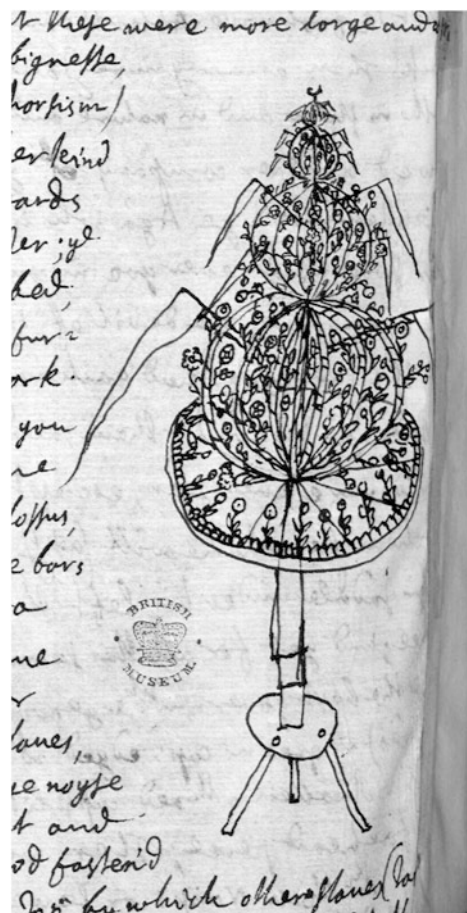 t these were more large and
bignesse
horsism
er kind
ards
ler; ye
bed,
fur=
ork
you
ne
lossus,
e bars
ra
ne
r
BRITISH
MUSEUM
laues,
e noyse
t and
od fasten'd
by which other slaues